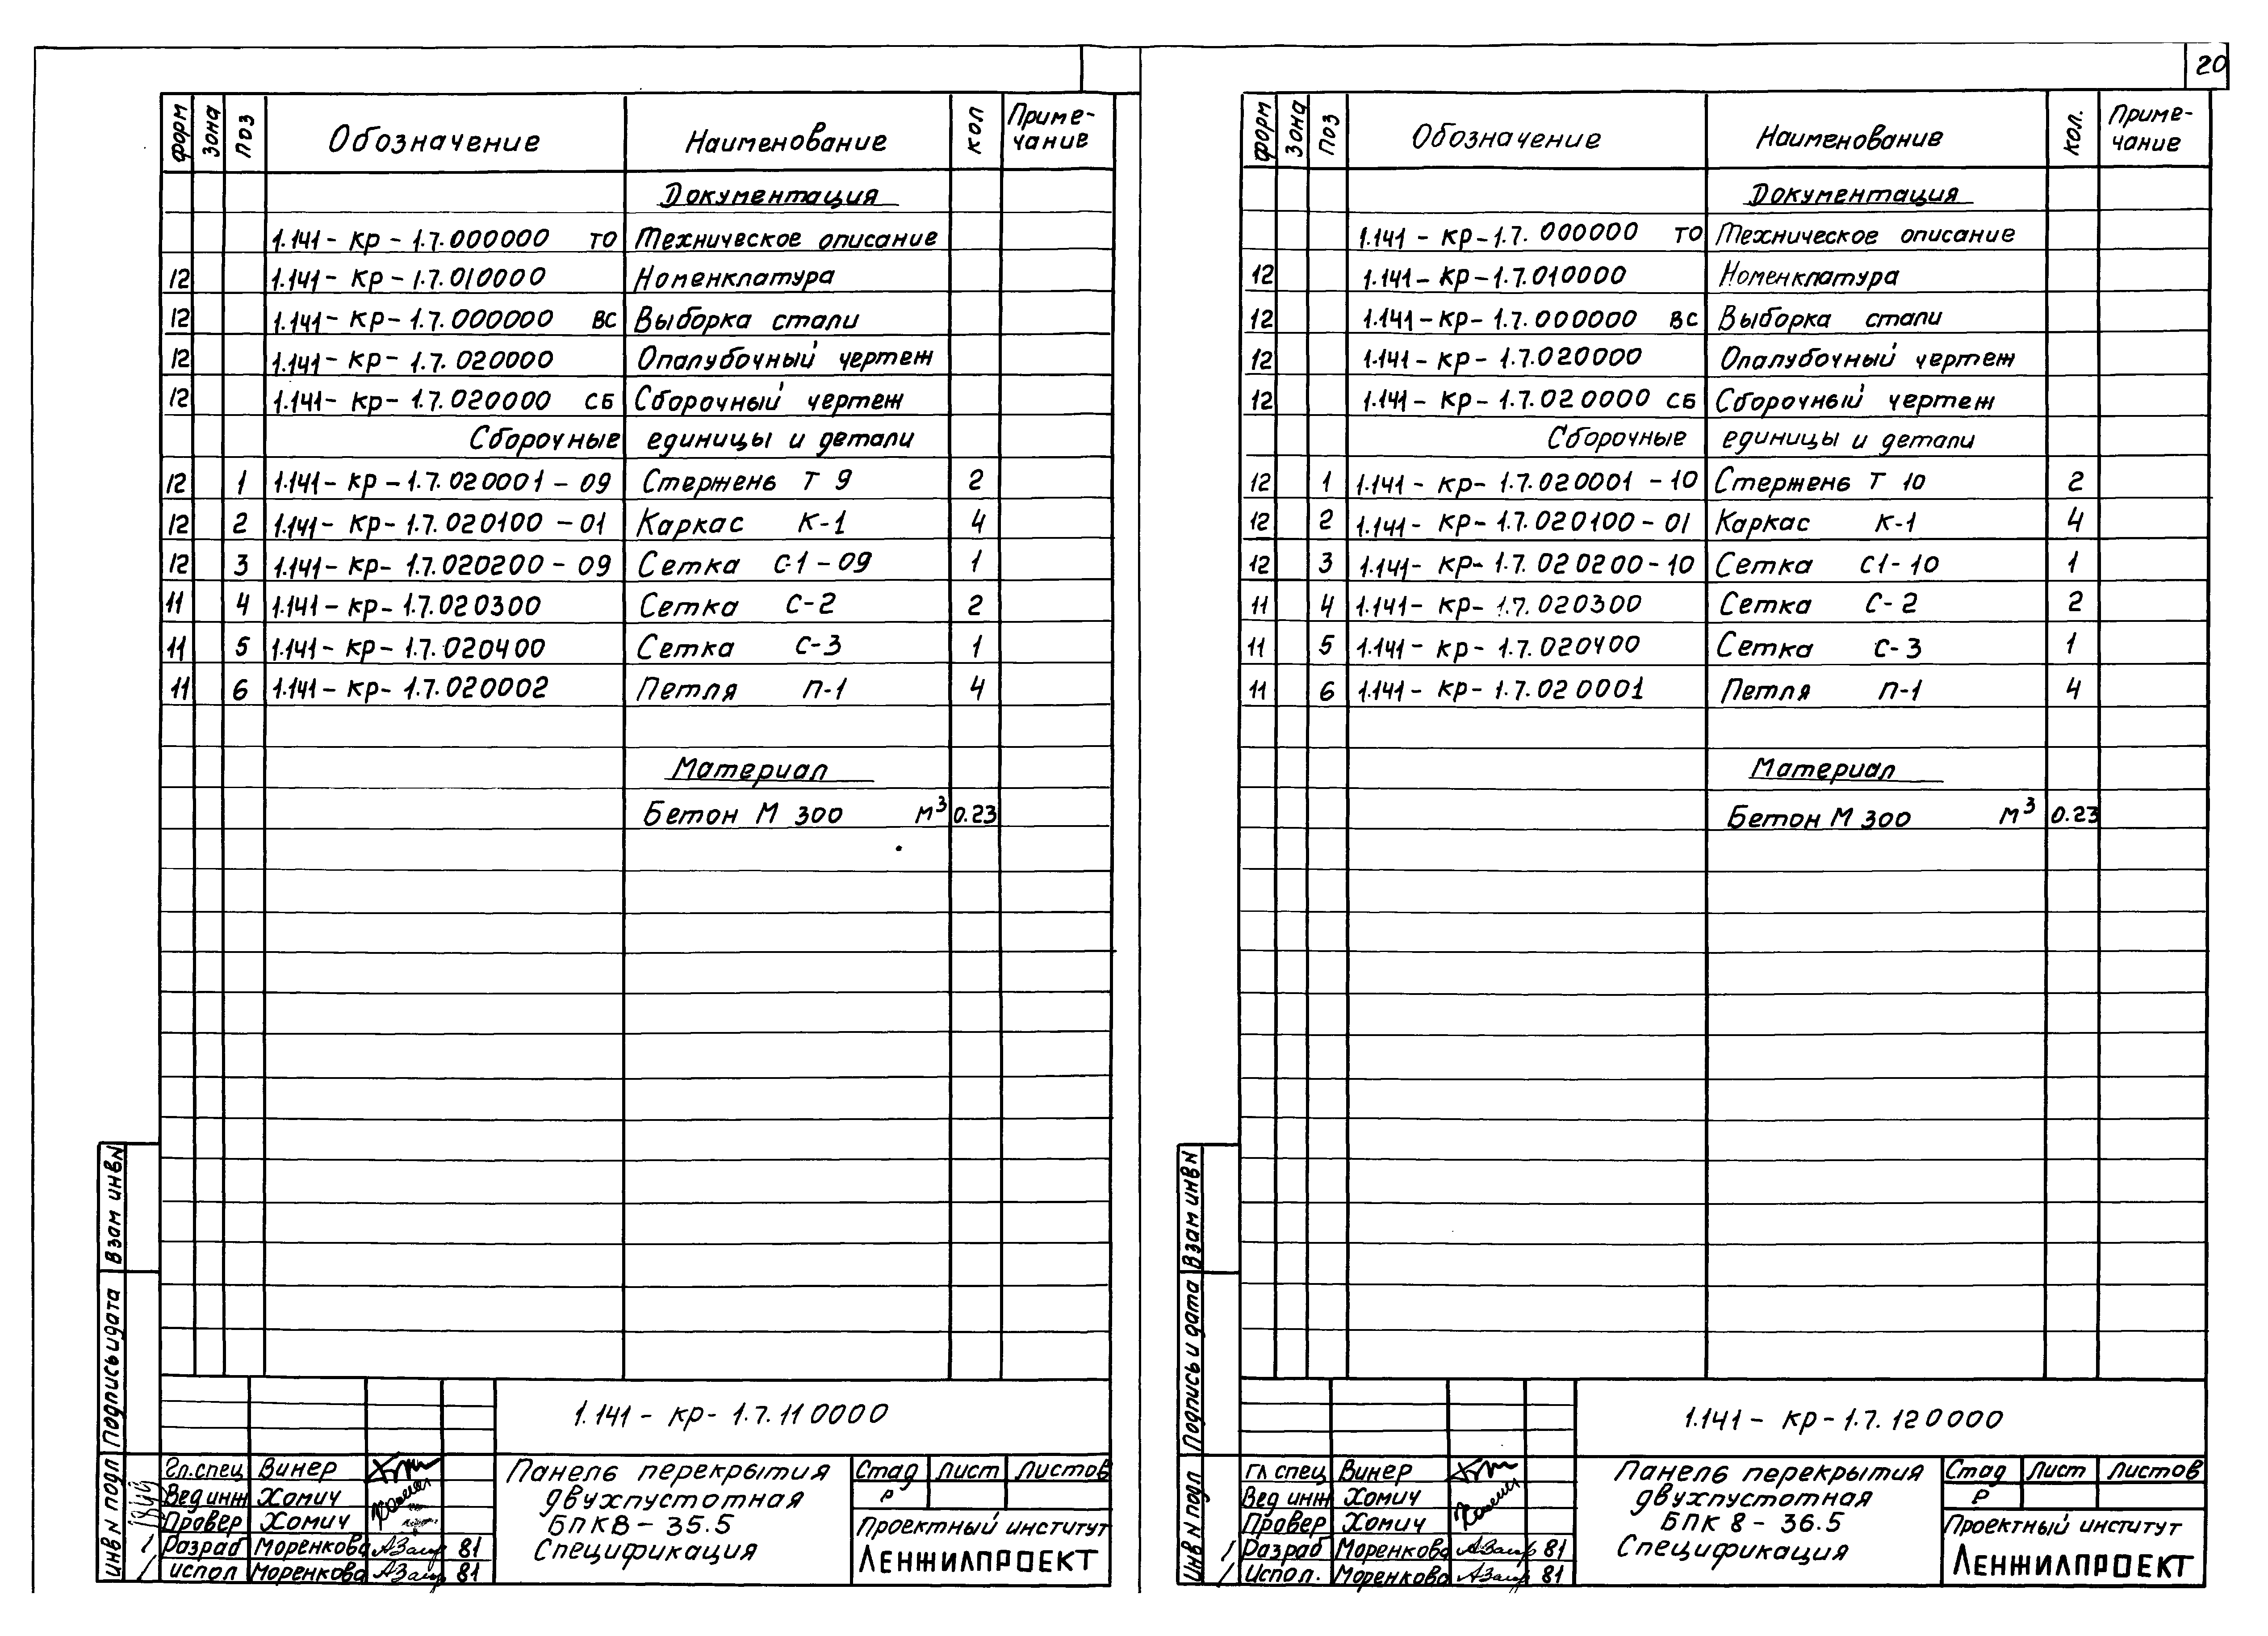 20
форм зона поз Обозначение Наименование кол Приме-
чание
Документация
1.141-кр-1.7.000000 ТО Техническое описание
12 1.141-кр-1.7.010000 Номенклатура
12 1.141-кр-1.7.000000 ВС Выборка стали
12 1.141-кр-1.7.020000 Опалубочный чертеж
12 1.141-кр-1.7.020000 СБ Сборочный чертеж
Сборочные единицы и детали
12 1 1.141-кр-1.7.020001-09 Стержень Т 9 2
12 2 1.141-кр-1.7.020100-01 Каркас К-1 4
12 3 1.141-кр-1.7.020200-09 Сетка С-1-09 1
11 4 1.141-кр-1.7.020300 Сетка С-2 2
11 5 1.141-кр-1.7.020400 Сетка С-3 1
11 6 1.141-кр-1.7.020002 Петля П-1 4
Материал
Бетон М 300 м³ 0.23
1.141-кр-1.7.110000
Гл.спец Винер
Вед инж Хомич
Провер Хомич
Разраб Моренкова 81
испол Моренкова 81
Панель перекрытия
двухпустотная
БПК8-35.5
Спецификация
Стад Лист Листов
Р
Проектный институт
ЛЕНЖИЛПРОЕКТ
Инв N подл Подпись и дата Взам инв N
форм зона поз Обозначение Наименование кол. Приме-
чание
Документация
1.141-кр-1.7.000000 ТО Техническое описание
12 1.141-кр-1.7.010000 Номенклатура
12 1.141-кр-1.7.000000 ВС Выборка стали
12 1.141-кр-1.7.020000 Опалубочный чертеж
12 1.141-кр-1.7.020000 СБ Сборочный чертеж
Сборочные единицы и детали
12 1 1.141-кр-1.7.020001-10 Стержень Т 10 2
12 2 1.141-кр-1.7.020100-01 Каркас К-1 4
12 3 1.141-кр-1.7.020200-10 Сетка С1-10 1
11 4 1.141-кр-1.7.020300 Сетка С-2 2
11 5 1.141-кр-1.7.020400 Сетка С-3 1
11 6 1.141-кр-1.7.020001 Петля П-1 4
Материал
Бетон М 300 м³ 0.23
1.141-кр-1.7.120000
Гл спец Винер
Вед инж Хомич
Провер Хомич
Разраб Моренкова 81
Испол. Моренкова 81
Панель перекрытия
двухпустотная
БПК 8-36.5
Спецификация
Стад Лист Листов
Р
Проектный институт
ЛЕНЖИЛПРОЕКТ
Инв N подл Подпись и дата Взам инв N